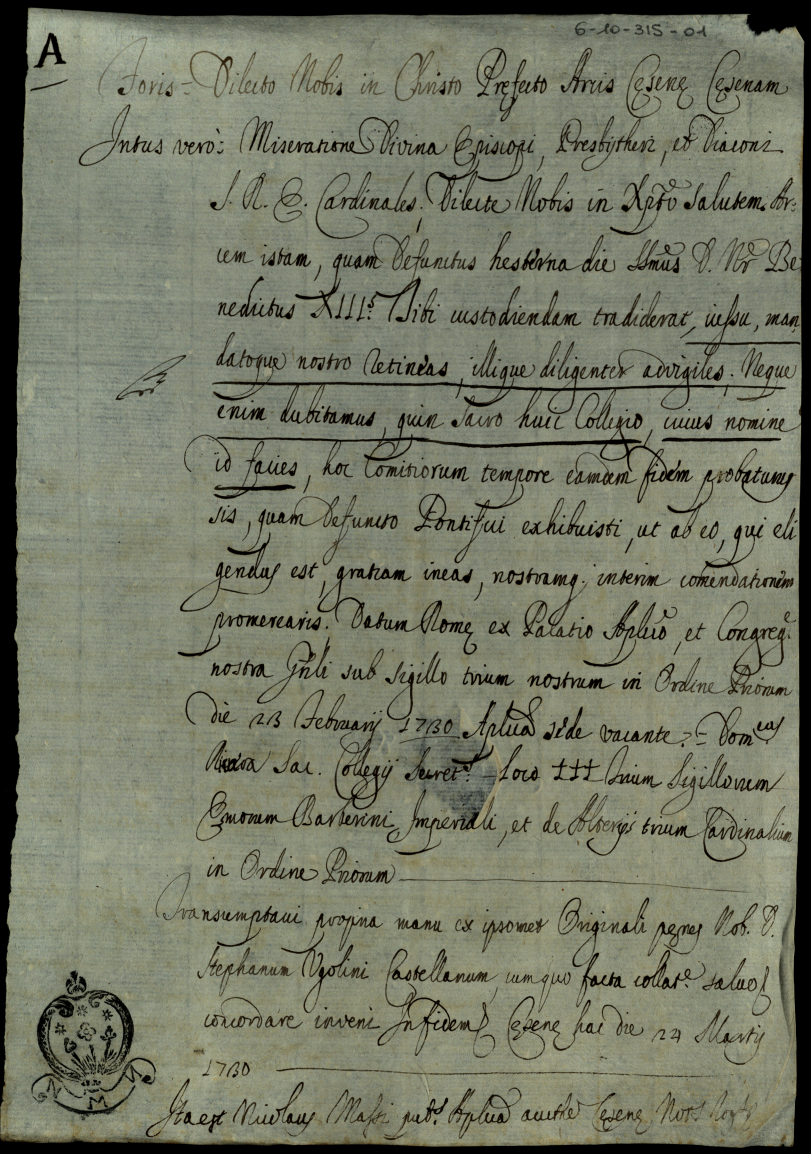 6-10-315-01
A
Foris = Dilecto Nobis in Christo Pręfecto Arcis Cęsenę Cęsenam
Intus verò: Miseratione Divina Episcopi, Presbÿtheri, et Diaconi
S. R. E. Cardinales. Dilecte Nobis in Xpto salutem. Ar=
cem istam, quam Defunctus hesterna die SSmus D. Nr Be
nedictus XIIIs. Tibi custodiendam tradiderat, iussu, man
datoque nostro retineas, illique diligenter advigiles. Neque
enim dubitamus, quin Sacro huic Collegio, cuius nomine
id facies, hoc Comitiorum tempore eamdem fidem probaturus
sis, quam Defuncto Pontifici exhibuisti, ut ab eo, qui eli
gendus est, gratiam ineas, nostramq. interim comendationem
promerearis. Datum Romę ex Palatio Aplico, et Congreg.e
nostra Gnli sub sigillo trium nostrum in Ordine Priorum
die 23 Februarij 1730 Aplica sede vacante. = Dom.cus
Riviera Sac. Collegij Secret.s – Loco +++ trium Sigillorum
Emorum Barberini, Imperiali, et de Alterijs trium Cardinalium
in Ordine Priorum
Transumptavi propria manu ex ipsomet Originali penes Nob. D.
Stephanum Ugolini Castellanum, cum quo facta collat.e salvo
concordare inveni In fidem Cęsenę hac die 24 Martij
1730
N M N
Ita est Nicolaus Massi pub.s Aplica aucthe Cęsenę Not.s